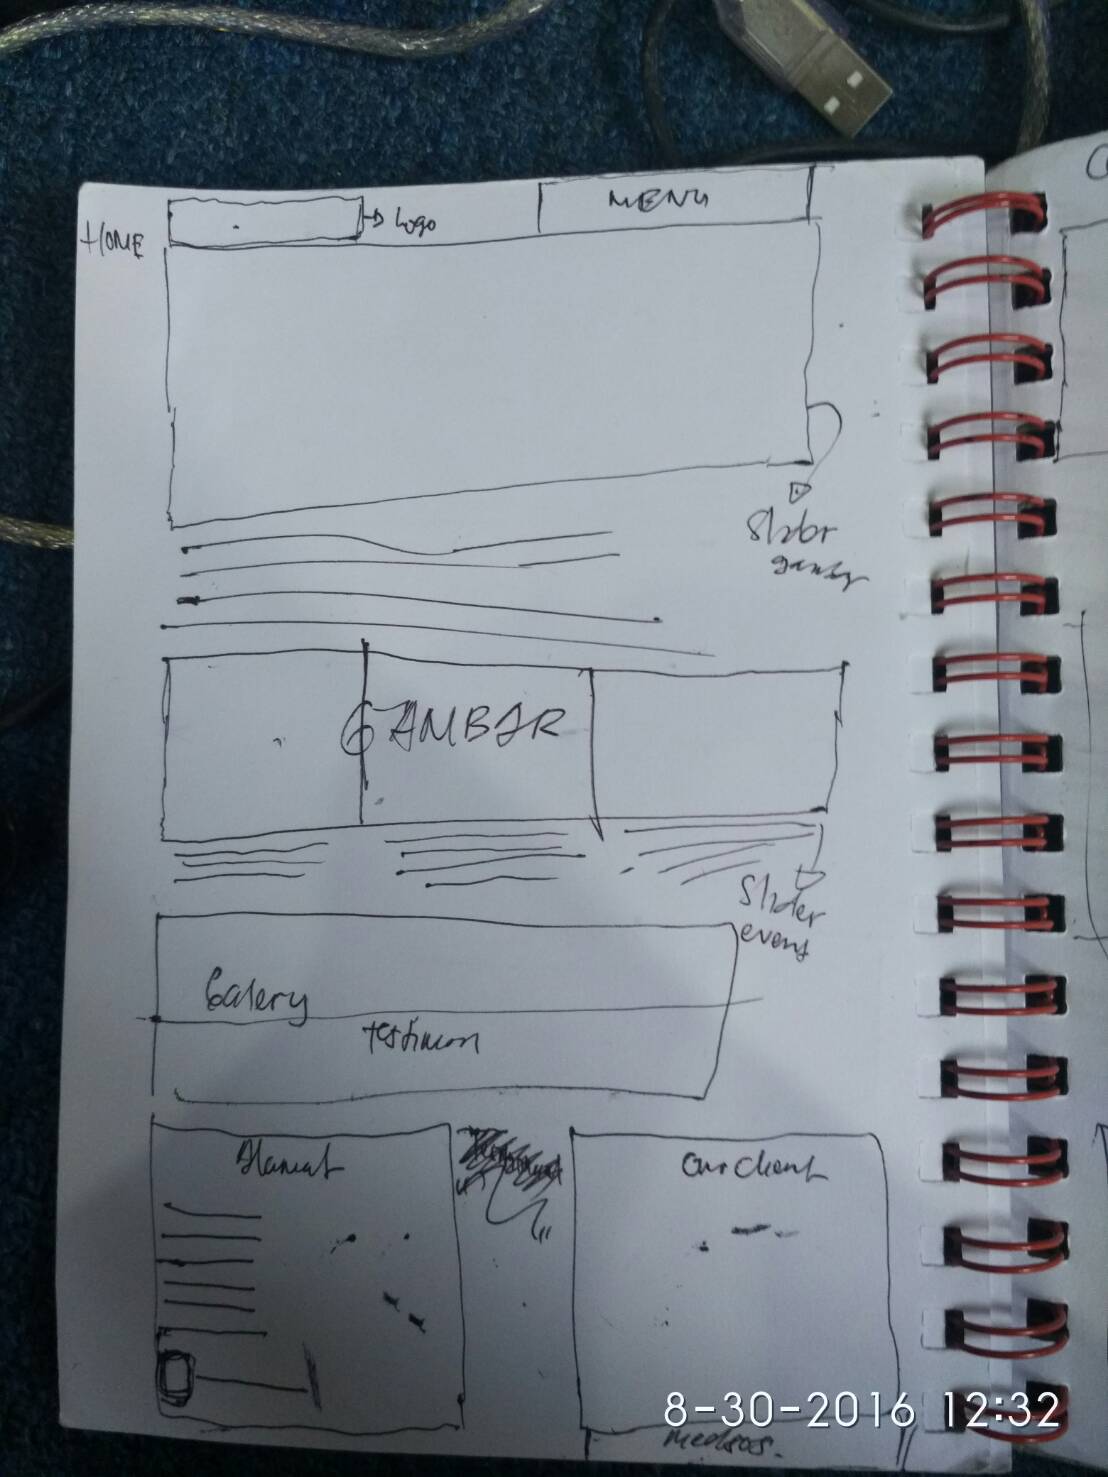 HOME
Logo
MENU
Slider
GAMBAR
Slider
event
Galery
testimoni
Alamat
Our Client
medsos.
8-30-2016 12:32